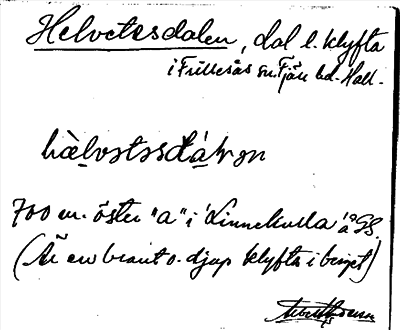 Helvetesdalen, dal l. klyfta
i Frillesås sn. Fjäre hd. Hall.
700 m. öster "a" i Linnekulla å GS.
(Är en brant o. djup klyfta i berget)